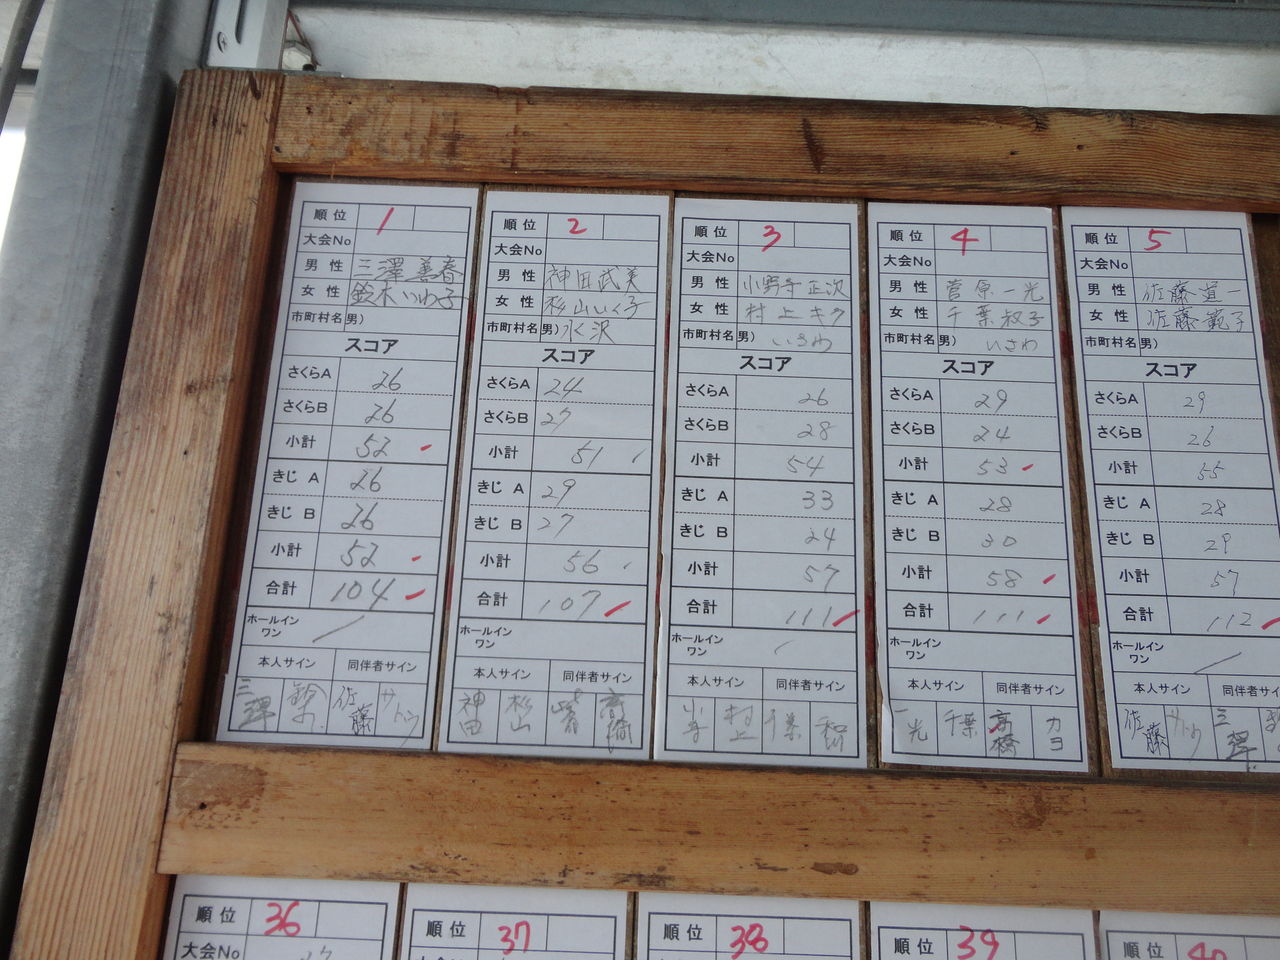 順位 1
大会No
男性 三澤善春
女性 鈴木いわ子
市町村名 男)
スコア
さくらA 26
さくらB 26
小計 52
きじ A 26
きじ B 26
小計 52
合計 104
ホールイン
ワン
本人サイン 同伴者サイン
三澤 鈴木 佐藤 サトウ
順位 2
大会No
男性 神田武美
女性 杉山いく子
市町村名 男) 水沢
スコア
さくらA 24
さくらB 27
小計 51
きじ A 29
きじ B 27
小計 56
合計 107
ホールイン
ワン
本人サイン 同伴者サイン
神田 杉山 高橋
順位 3
大会No
男性 小野寺正次
女性 村上キク
市町村名 男) いさわ
スコア
さくらA 26
さくらB 28
小計 54
きじ A 33
きじ B 24
小計 57
合計 111
ホールイン
ワン
本人サイン 同伴者サイン
村上 千葉
順位 4
大会No
男性 菅原一光
女性 千葉叔子
市町村名 男) いさわ
スコア
さくらA 29
さくらB 24
小計 53
きじ A 28
きじ B 30
小計 58
合計 111
ホールイン
ワン
本人サイン 同伴者サイン
一光 千葉 高橋 カヨ
順位 5
大会No
男性 佐藤道一
女性 佐藤範子
市町村名 男)
スコア
さくらA 29
さくらB 26
小計 55
きじ A 28
きじ B 29
小計 57
合計 112
ホールイン
ワン
本人サイン 同伴者サイン
佐藤 サトウ 三澤
順位 36
大会No
順位 37
順位 38
順位 39
順位 40